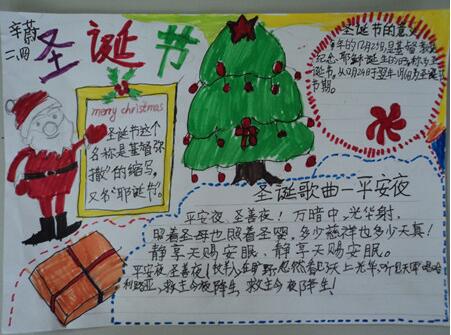 辛蔚
二、四
圣诞节
merry christmas
圣诞节这个
名称是基督弥
撒"的缩写，
又名"耶诞节"。
圣诞节的意义
年的12月25日，是基督教
纪念耶稣诞生的日称为圣
诞节，从12月24日于翌年1月6日为圣诞节
节期。
圣诞歌曲—平安夜
平安夜，圣善夜！万暗中，光华射，
照着圣母也照着圣婴，多少慈祥也多少天真！
静享天赐安眠、静享天赐安眠。
平安夜，圣善夜！牧羊人，在旷野，忽然看见天上光华，听见天军唱哈
利路亚，救主今夜降生，救主今夜降生！